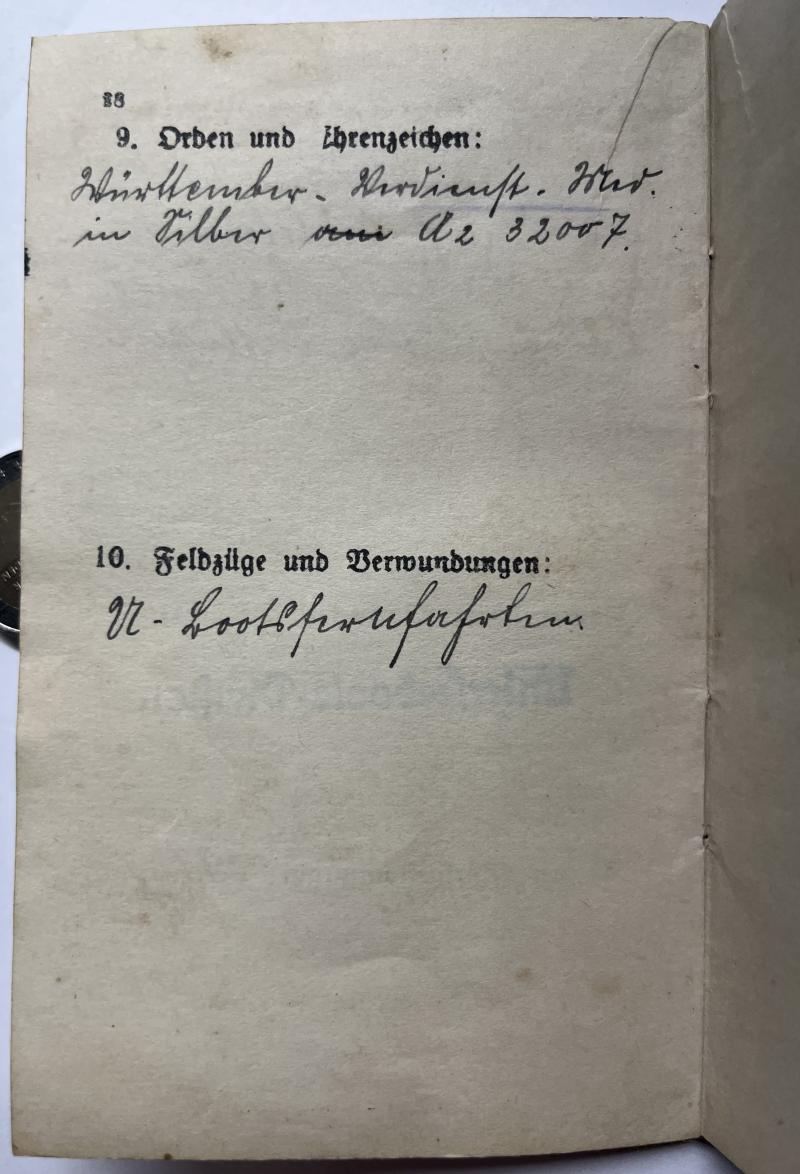 28
9. Orden und Ehrenzeichen:
Württember. Verdienst. Med.
in Silber am A2 32007.
10. Feldzüge und Verwundungen:
U-Bootsfernfahrten.